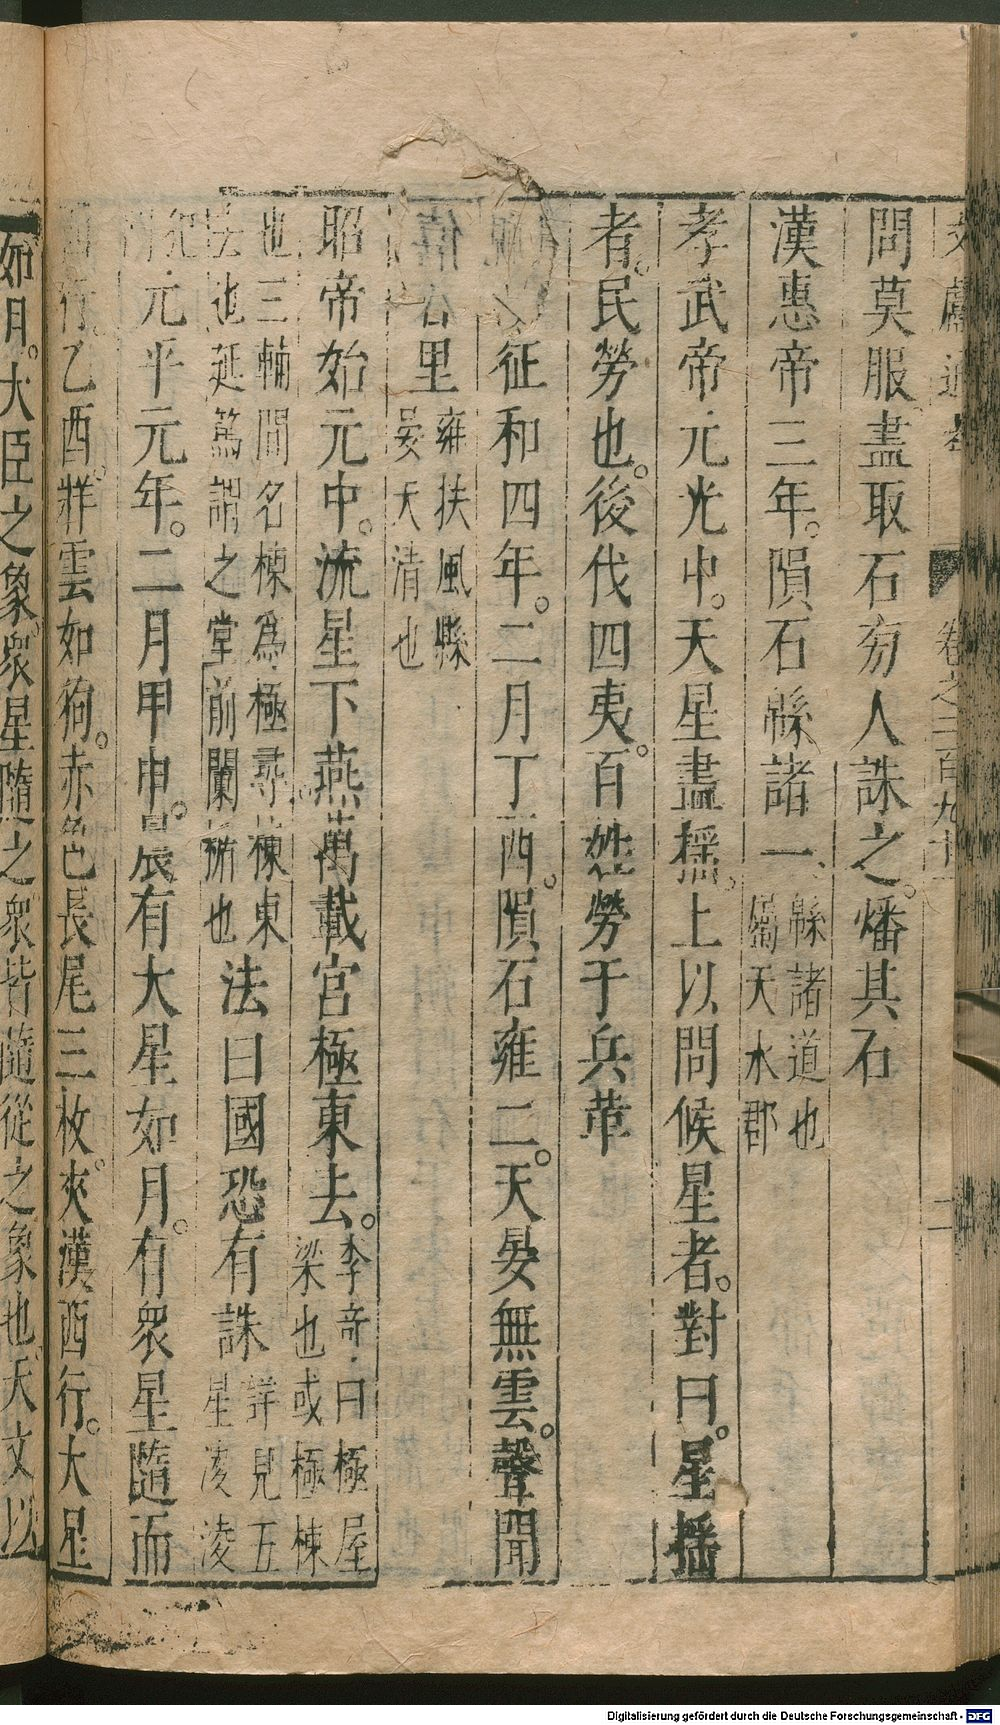 文獻通考 卷之二百九十一 二
問莫服盡取石旁人誅之。燔其石
漢惠帝三年。隕石緜諸一、緜諸道也屬天水郡
孝武帝元光中。天星盡搖。上以問候星者。對曰。星搖
者。民勞也。後伐四夷。百姓勞于兵革
征和四年。二月丁酉。隕石雍二。天晏無雲。聲聞
百里雍扶風縣晏天清也
昭帝始元中。流星下燕萬載宮極東去。李奇曰極屋梁也或極棟
也三輔間名棟爲極尋棟東去也延篤謂之堂前闌楯也法曰國恐有誅詳見五星凌
犯元平元年。二月甲申。晨有大星如月。有眾星隨而
西行。乙酉。牂雲如狗。赤色長尾三枚。夾漢西行。大星
如月。大臣之象。眾星隨之。眾皆隨從之象也。天文以
Digitalisierung gefördert durch die Deutsche Forschungsgemeinschaft - DFG